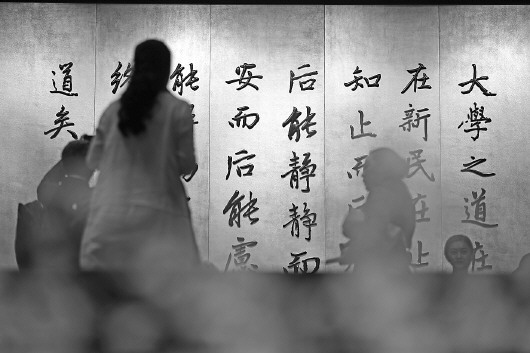 大學之道在
在新民在止
知止而
后能静静而
安而后能慮
能
終
道矣